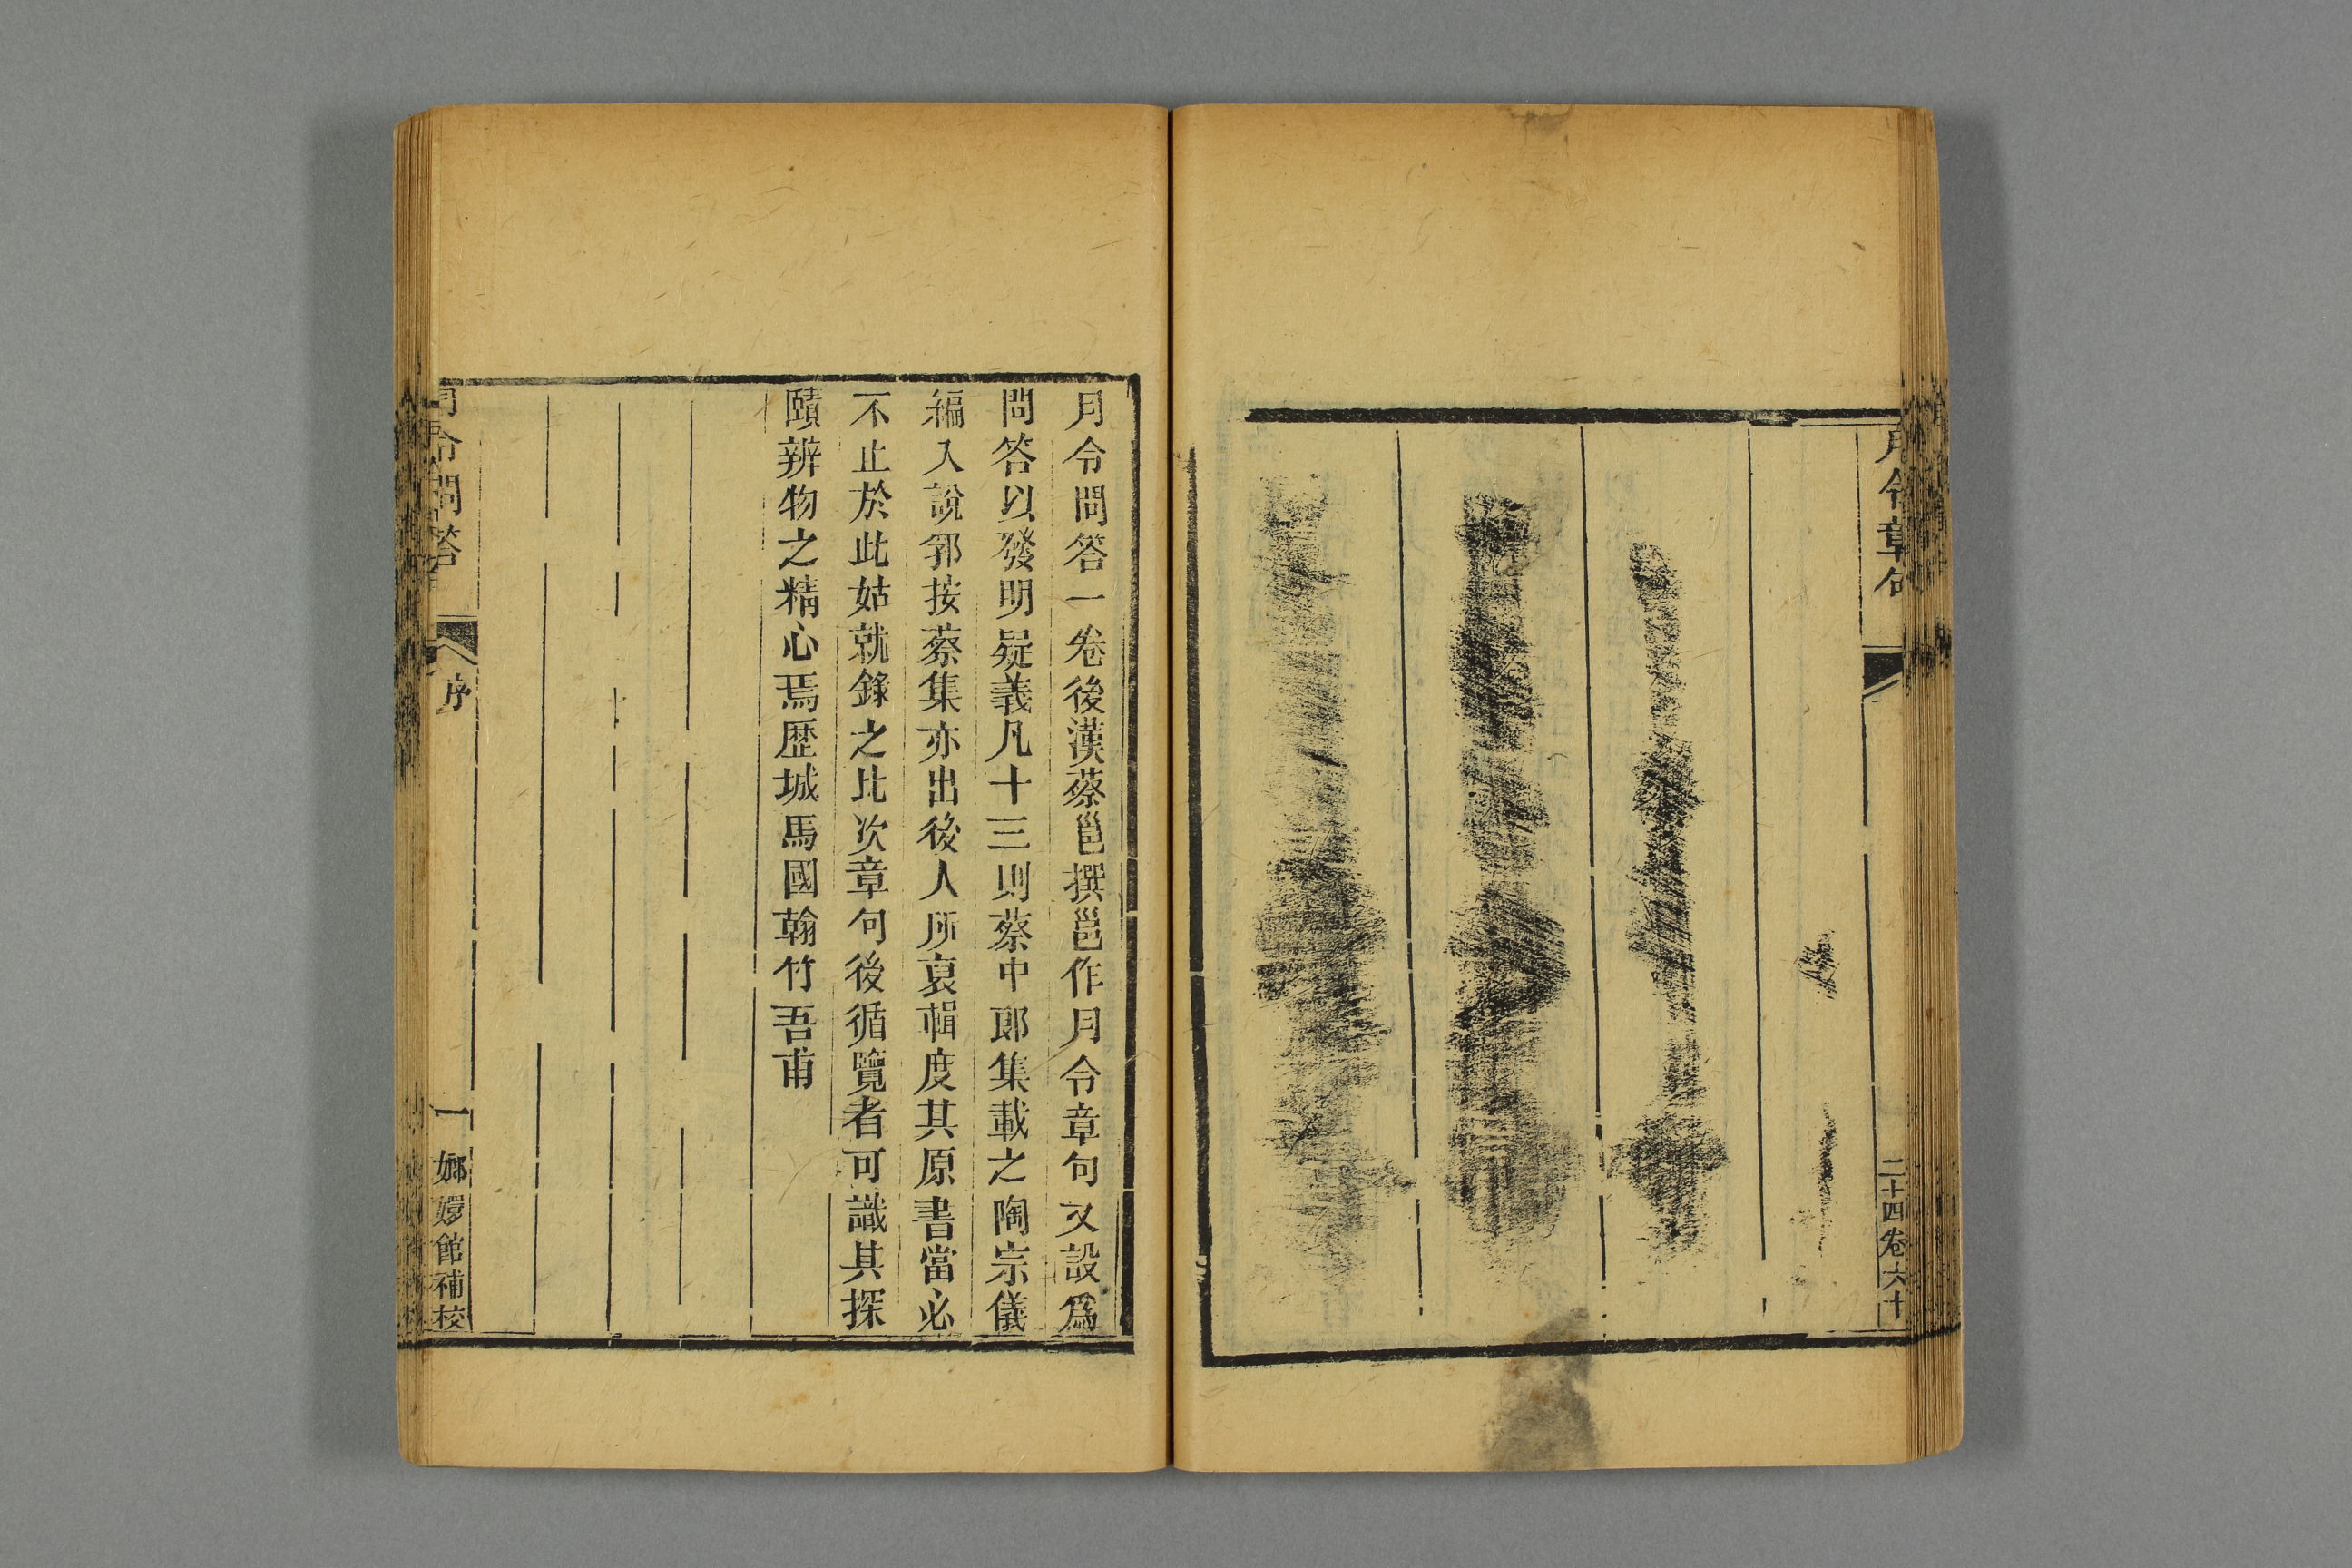 月令章句
二十四卷六十
月令問答一卷後漢蔡邕撰邕作月令章句又設爲
問答以發明疑義凡十三則蔡中郎集載之陶宗儀
編入說郛按蔡集亦出後人所裒輯度其原書當必
不止於此姑就錄之比次章句後循覽者可識其探
賾辨物之精心焉歷城馬國翰竹吾甫
月令問答
序
一
嫏嬛館補校